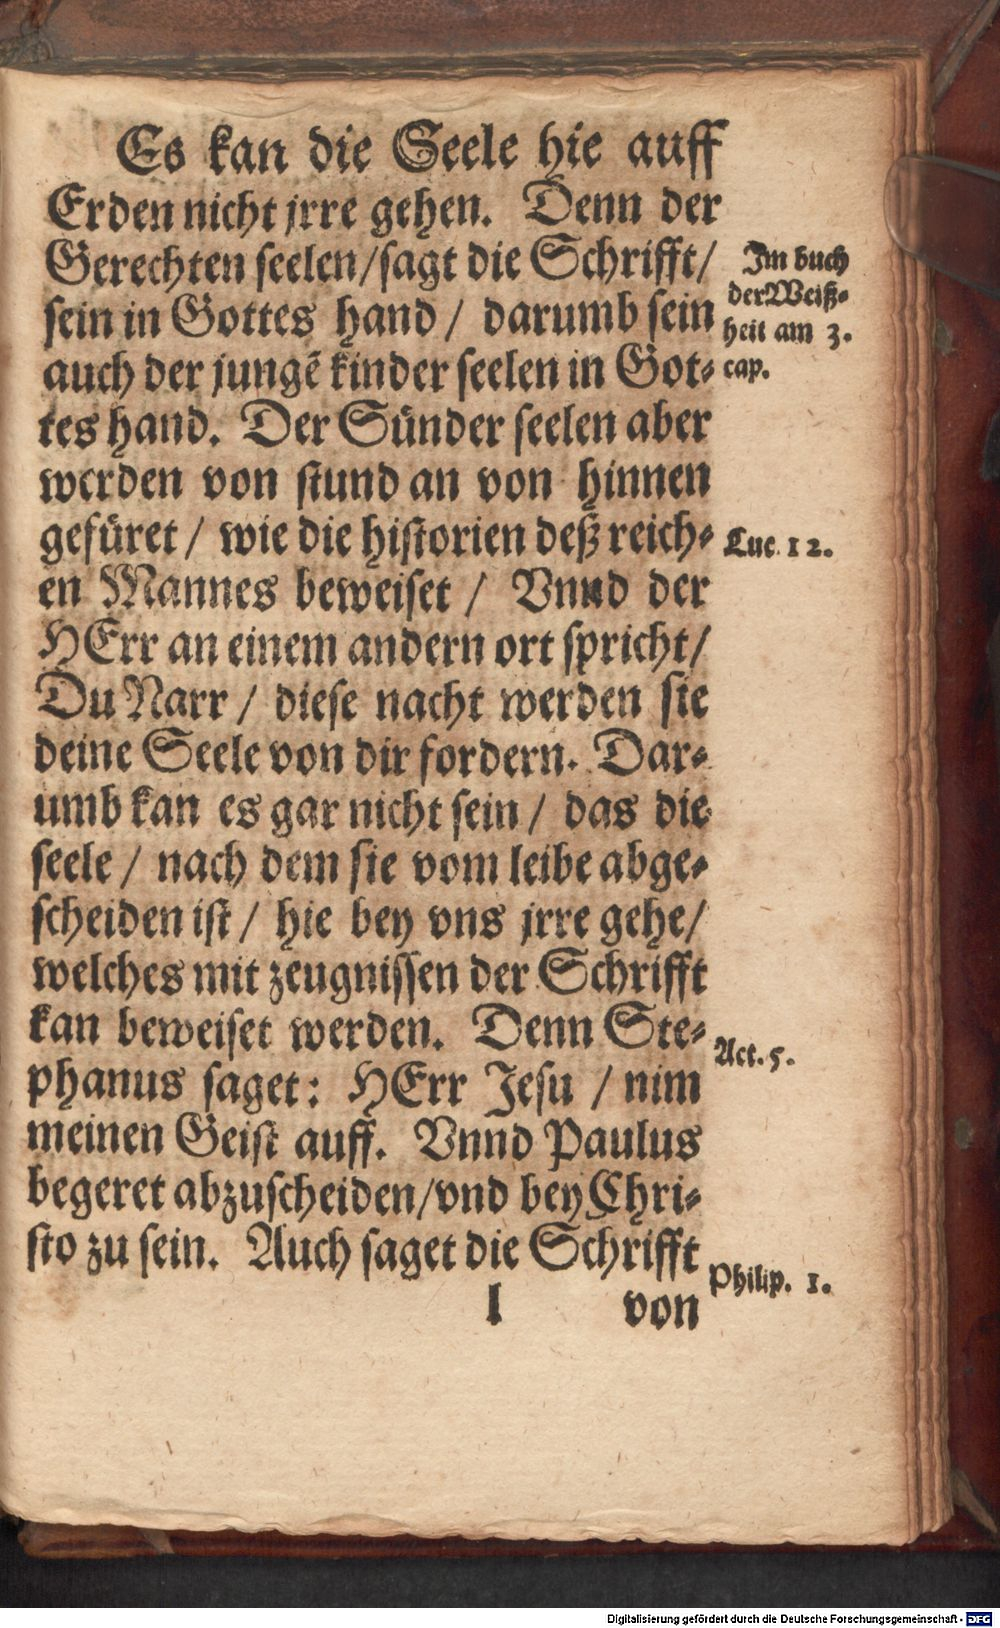 Es kan die Seele hie auff
Erden nicht jrre gehen. Denn der
Gerechten seelen/sagt die Schrifft/
sein in Gottes hand / darumb sein
auch der jungẽ kinder seelen in Got⸗
tes hand. Der Sünder seelen aber
werden von stund an von hinnen
gefüret / wie die historien deß reich⸗
en Mannes beweiset / Vnnd der
HErr an einem andern ort spricht/
Du Narr / diese nacht werden sie
deine Seele von dir fordern. Dar⸗
umb kan es gar nicht sein / das die
seele / nach dem sie vom leibe abge⸗
scheiden ist / hie bey vns jrre gehe/
welches mit zeugnissen der Schrifft
kan beweiset werden. Denn Ste⸗
phanus saget: HErr Jesu / nim
meinen Geist auff. Vnnd Paulus
begeret abzuscheiden/vnd bey Chri⸗
sto zu sein. Auch saget die Schrifft
l von
Im buch
der Weiß⸗
heit am 3.
cap.
Luc. 12.
Act. 5.
Philip. 1.
Digitalisierung gefördert durch die Deutsche Forschungsgemeinschaft - DFG